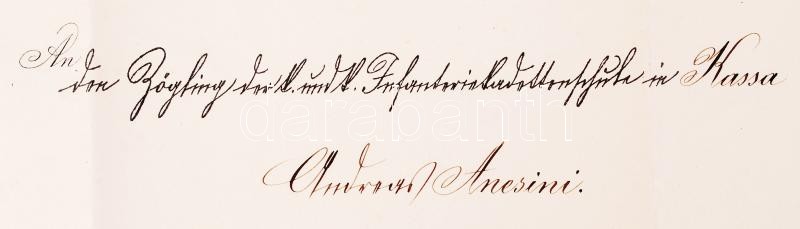 An
den Zögling der k. und k. Infanteriekadettenschule in Kassa
darabanth
Andreas Anesini.